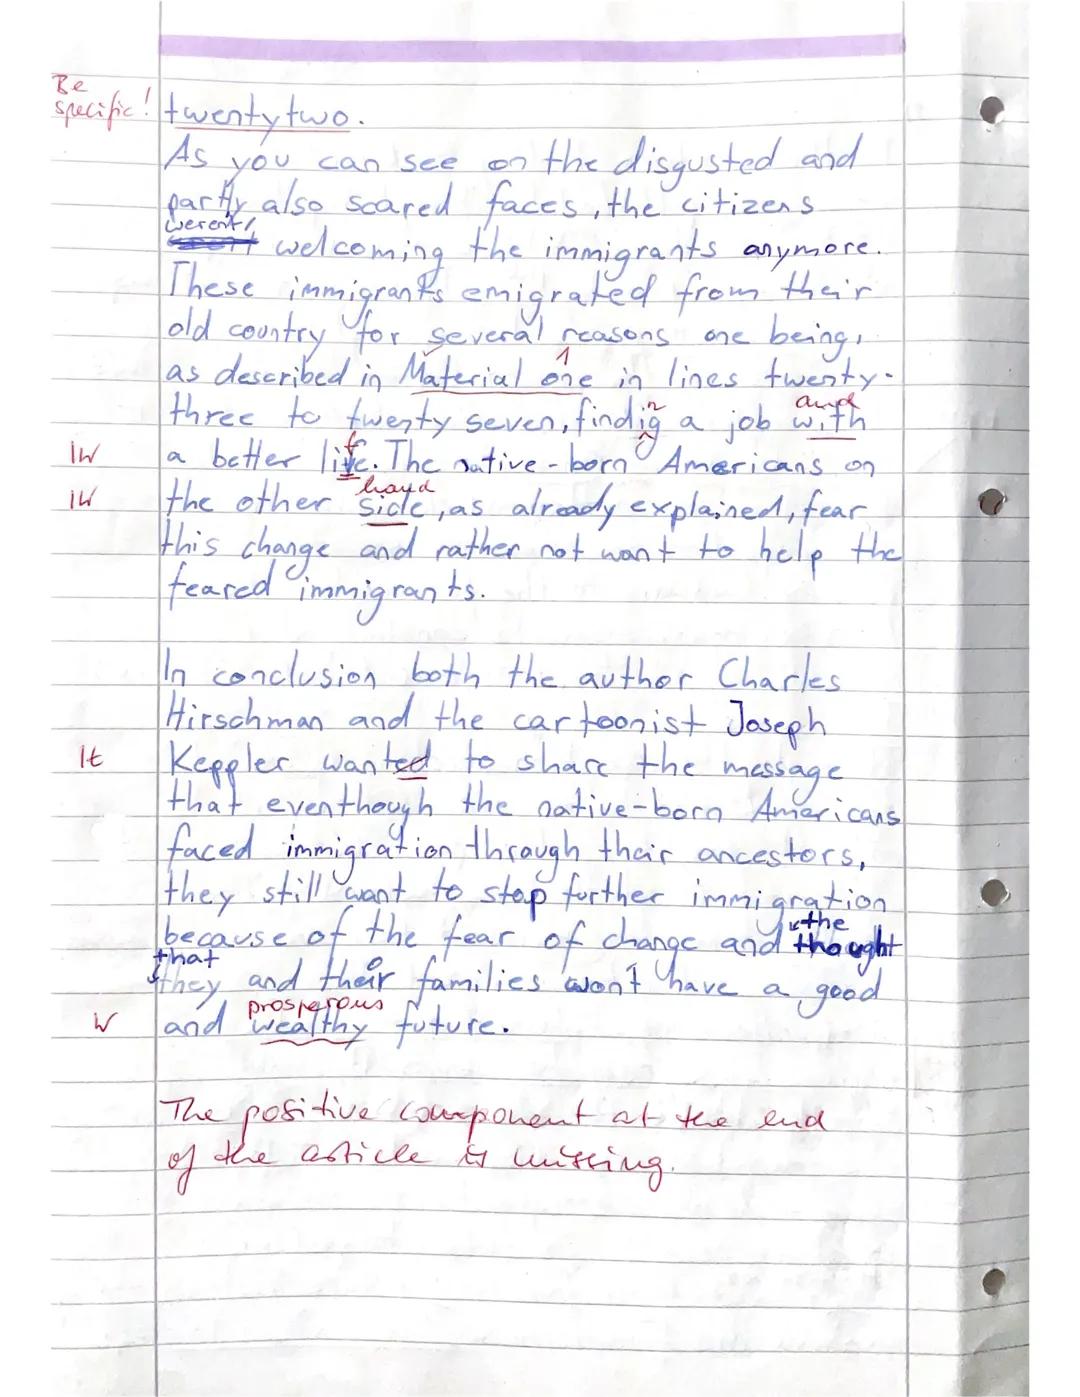 Be
specific! twentytwo.
As you can see on the disgusted and
partly also scared faces, the citizens
weren't
welcoming the immigrants anymore.
These immigrants emigrated from their
old country for several reasons one being,
1
as described in Material one in lines twenty-
and
three to twenty seven, findig a job with
n
IW a better live. The native-born Americans on
f
hand
IW the other side, as already explained, fear
this change and rather not want to help the
feared immigrants.
In conclusion both the author Charles
Hirschman and the cartoonist Joseph
It Keppler wanted to share the message
that eventhough the native-born Americans
faced immigration through their ancestors,
they still want to stop further immigration
the
because of the fear of change and thought
that
they and their families won't have a good
prosperous
W and wealthy future.
The positive component at the end
of the article is missing.